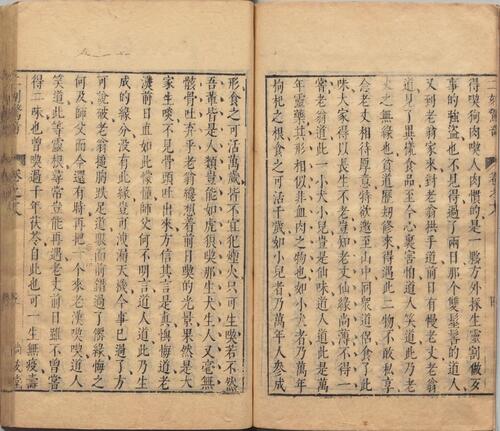 得嗅狗肉嗅人肉慣的是一夥方外採生靈割做歹
事的強盜也不見得過了兩日那个雙髻的道人
又到老翁家來對老翁拱手道前日有慢老丈老翁
道見了異樣食品至今心裏害怕道人笑道此乃老
丈之無緣也貧道歷刼修來得遇此二物不敢私享
念老丈相待厚意特欲邀至山中同衆道侶食了此
味大家得以長生不老豈知老丈仙緣尚薄不得一
嘗老翁道此一小犬小兒豈是仙味道人道此是萬
年靈藥其形相似非血肉之物也如小犬者乃萬年
枸杞之根食之可活千歲如小兒者乃萬年人參成
形食之可活萬歲皆不宜犯煙火只可生喫若不然
吾輩皆是人類豈能如虎狼喫那生犬生人又毫無
骸骨吐弃乎老翁纔想着前日喫的光景果然是大
家生喫不見骨頭吐出來方信其言是眞懊悔道老
漢前日直如此懞懂師父何不明言道人道此乃生
成的緣分沒有此緣豈可洩漏天機今事已過了方
可說破老翁搥胸跌足道眼面前錯過了僊緣悔之
何及師父而今還有時再把一个來老漢喫喫道人
笑道此等靈根尋常豈能再遇老丈前日雖不曾嘗
得二味也曾喫過千年茯苓自此也可一生無疫壽
卷之十八
尚友堂